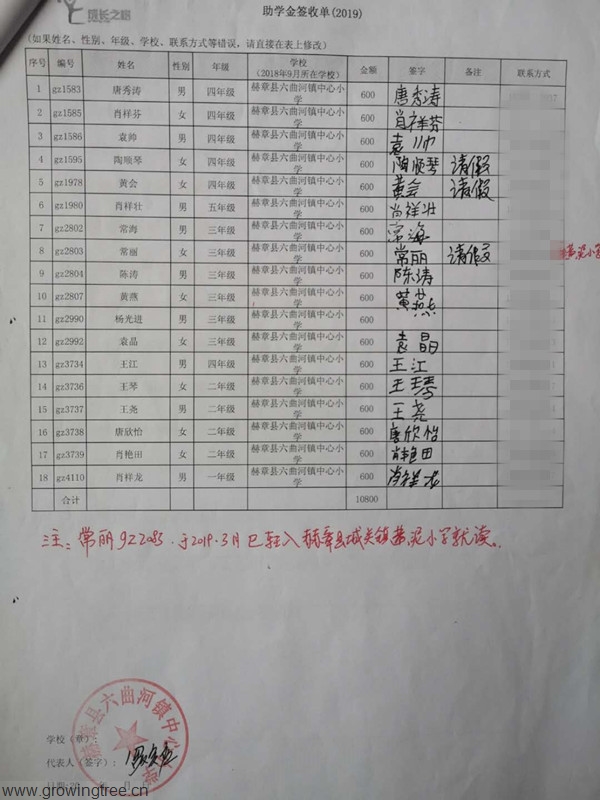 成长之路
助学金签收单(2019)
(如果姓名、性别、年级、学校、联系方式等错误，请直接在表上修改)
序号 编号 姓名 性别 年级 学校 (2018年9月所在学校) 金额 签字 备注 联系方式
1 gz1583 唐秀涛 男 四年级 赫章县六曲河镇中心小学 600 唐秀涛
2 gz1585 肖祥芬 女 四年级 赫章县六曲河镇中心小学 600 肖祥芬
3 gz1586 袁帅 男 四年级 赫章县六曲河镇中心小学 600 袁帅
4 gz1595 陶顺琴 女 四年级 赫章县六曲河镇中心小学 600 陶顺琴 请假
5 gz1978 黄会 女 四年级 赫章县六曲河镇中心小学 600 黄会 请假
6 gz1980 肖祥壮 男 五年级 赫章县六曲河镇中心小学 600 肖祥壮
7 gz2802 常海 男 三年级 赫章县六曲河镇中心小学 600 常海
8 gz2803 常丽 女 三年级 赫章县六曲河镇中心小学 600 常丽 请假 黄泥小学
9 gz2804 陈涛 男 三年级 赫章县六曲河镇中心小学 600 陈涛
10 gz2807 黄燕 女 三年级 赫章县六曲河镇中心小学 600 黄燕
11 gz2990 杨光进 男 三年级 赫章县六曲河镇中心小学 600
12 gz2992 袁晶 女 三年级 赫章县六曲河镇中心小学 600 袁晶
13 gz3734 王江 男 四年级 赫章县六曲河镇中心小学 600 王江
14 gz3736 王琴 女 二年级 赫章县六曲河镇中心小学 600 王琴
15 gz3737 王尧 男 二年级 赫章县六曲河镇中心小学 600 王尧
16 gz3738 唐欣怡 女 二年级 赫章县六曲河镇中心小学 600 唐欣怡
17 gz3739 肖艳田 女 二年级 赫章县六曲河镇中心小学 600 肖艳田
18 gz4110 肖祥龙 男 一年级 赫章县六曲河镇中心小学 600 肖祥龙
合计 10800
注：常丽gz2083.于2019.3月已转入赫章县城关镇黄泥小学就读。
赫章县六曲河镇中心小学
学校（章）：
代表人（签字）：
日期:20 年 月 日
www.growingtree.cn